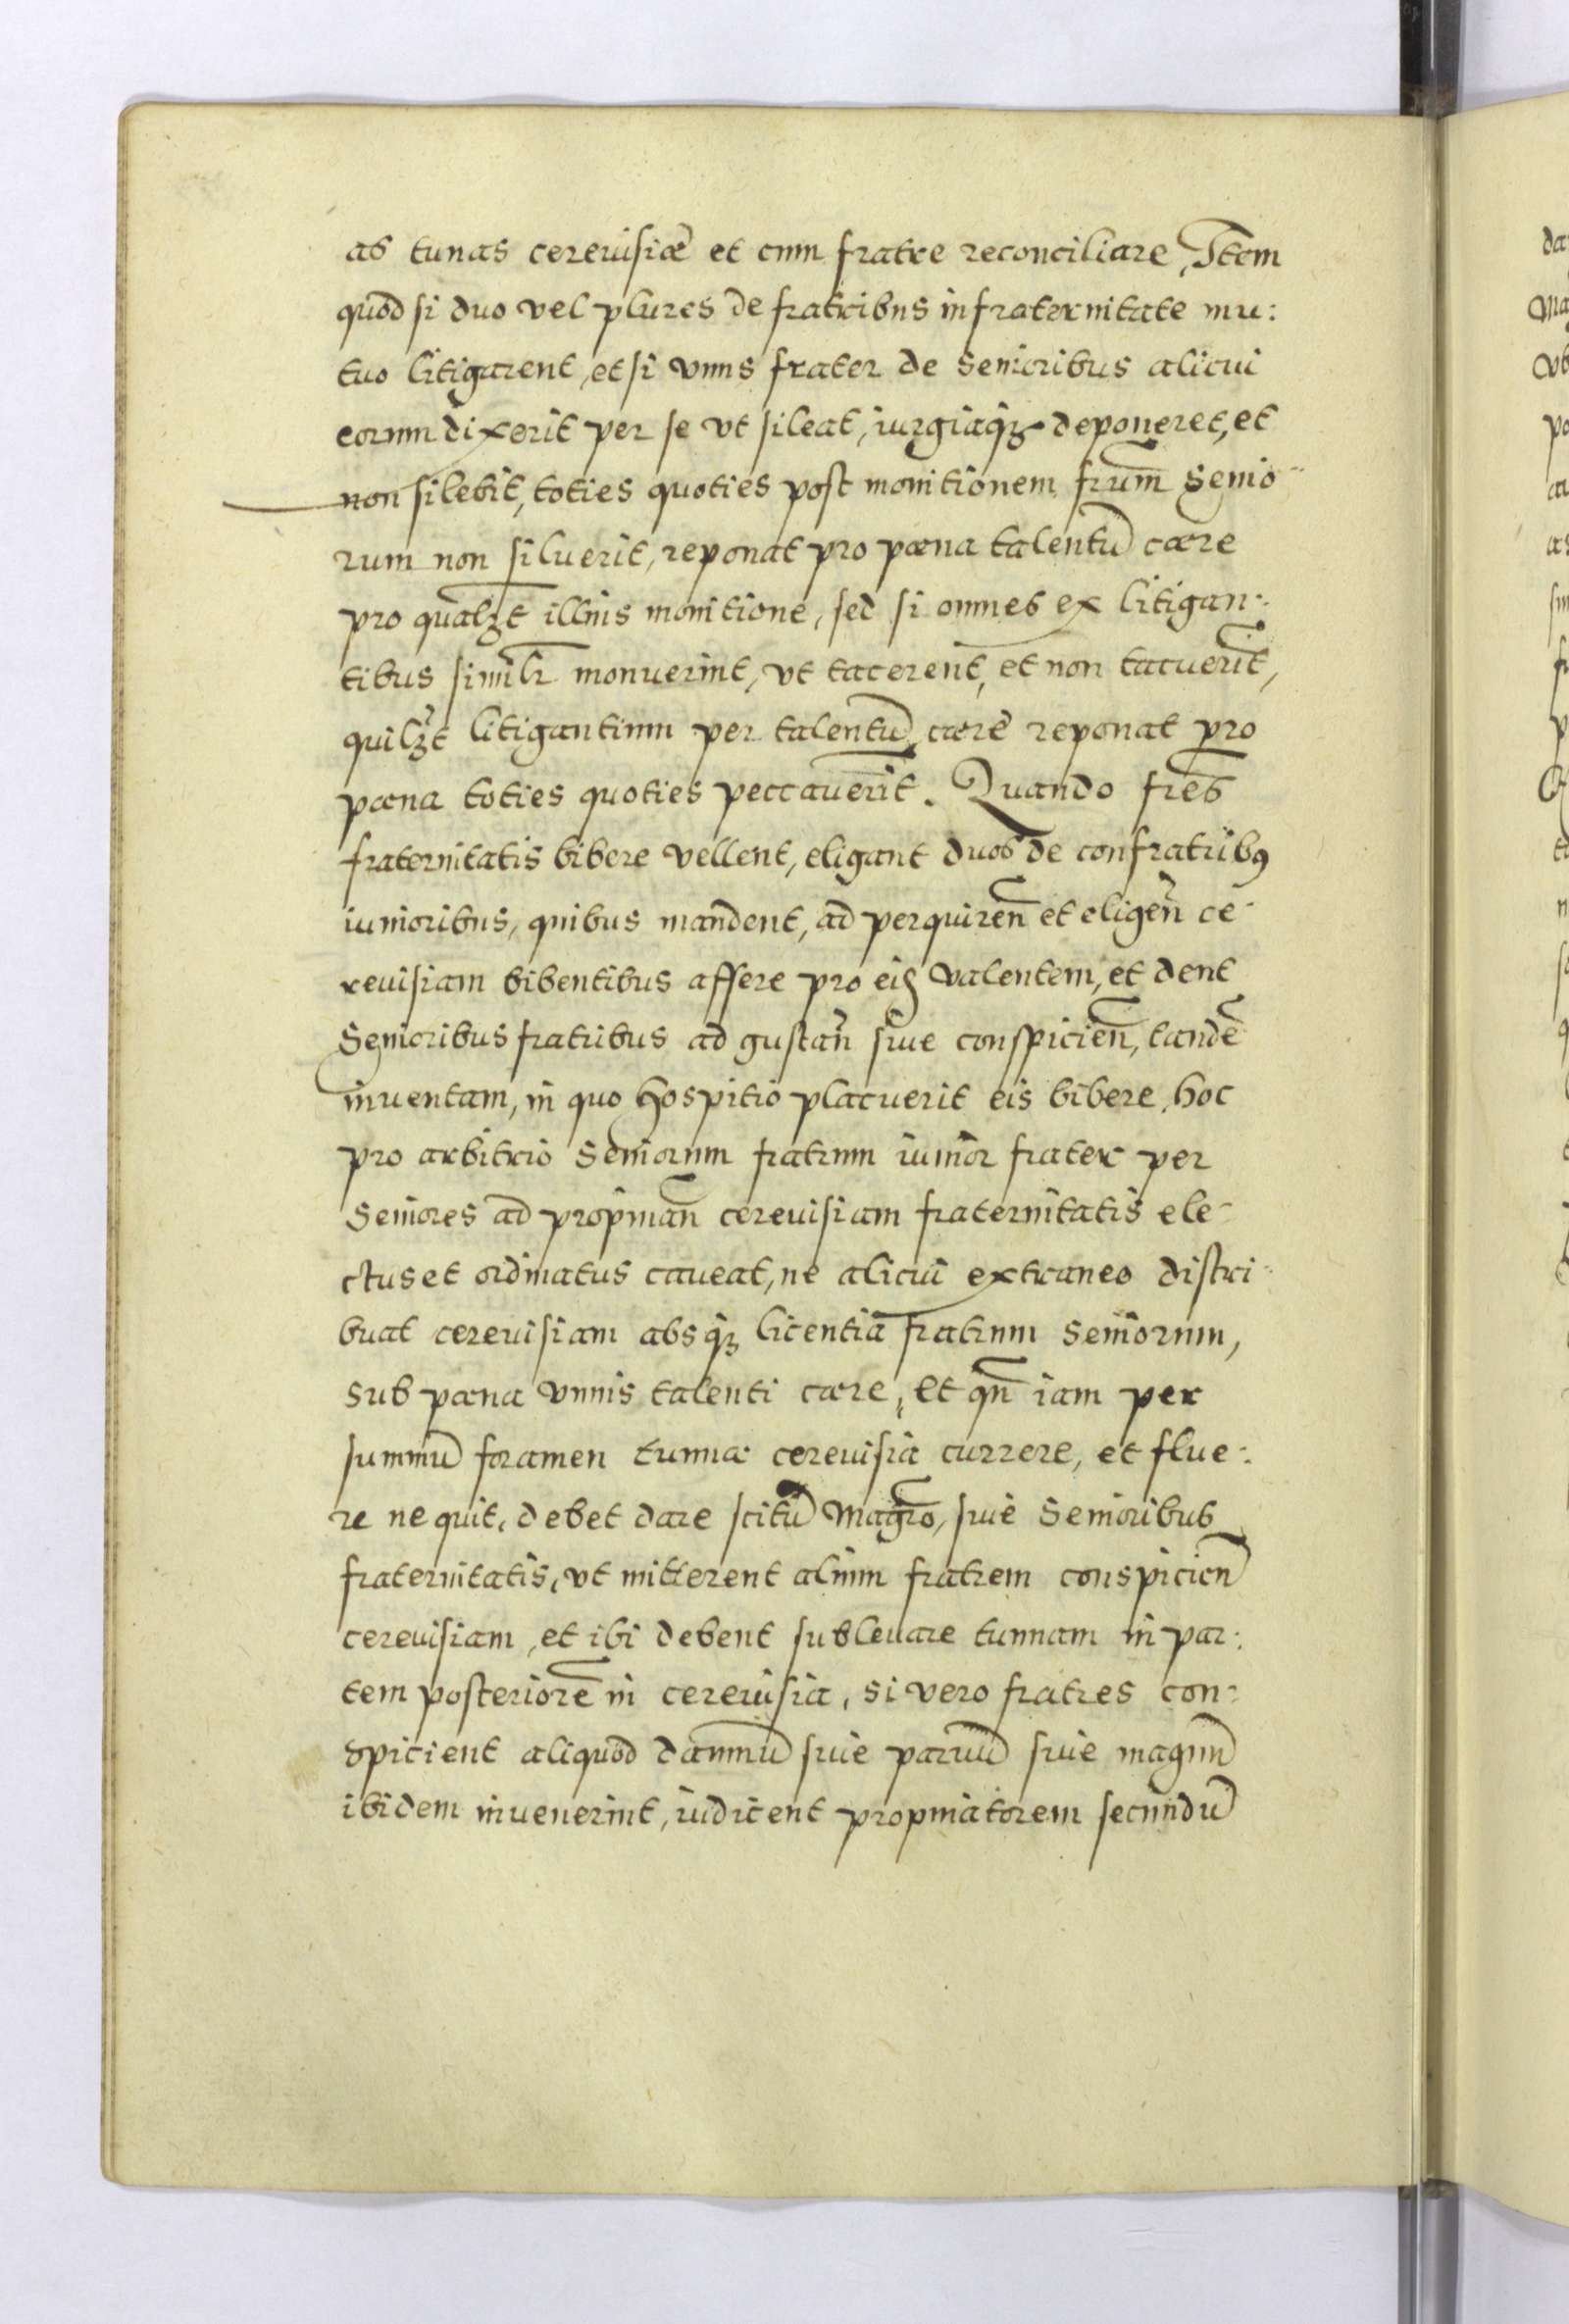 as tunas cereuisiæ et cum fratre reconciliare, Item
quod si duo vel plures de fratribus in fraternitate mu:
tuo litigarent, et si vnus frater de Senioribus alicui
eorum dixerit per se vt sileat, iurgiaqꝫ deponeret, et
non silebit, toties quoties post monitionem frum̄ Senio-
rum non siluerit, reponat pro pœna talentū cære
pro qualꝫt illius monitione, sed si omnes ex litigan:
tibus simil̄r monuerint, vt tacerent, et non tacuerīt,
quilꝫt litigantium per talentū, cære reponat pro
pœna toties quoties peccauerit. Quando fres̄
fraternitatis bibere vellent, eligant duos de confratribꝯ
iunioribus, quibus mandent, ad perquiren̄ et eligen̄ ce-
reuisiam bibentibus assere pro eis valentem, et dent
Senioribus fratribus ad gustan̄ siue conspicien̄, tandē
inuentam, in quo hospitio placuerit eis bibere, hoc
pro arbitrio Seniorum fratrum iunior frater per
Seniores ad propinan̄ cereuisiam fraternitatis ele-
ctus et ordinatus caueat, ne alicui extraneo distri-
buat cereuisiam absqꝫ licentia fratrum Seniorum,
sub pœna vnius talenti cære, et qn̄ iam per
summū foramen tunnæ cereuisia currere, et flue:
re nequit, debet dare scitū Magr̄o, siue Senioribus
fraternitatis, vt mitterent alium fratrem conspicien̄
cereuisiam, et ibi debent subleuare tunnam in par:
tem posteriorē in cereuisia, si vero fratres con-
spicient aliquod damnū siue paruū siue magnū
ibidem inuenerint, iudicent propinatorem secundū